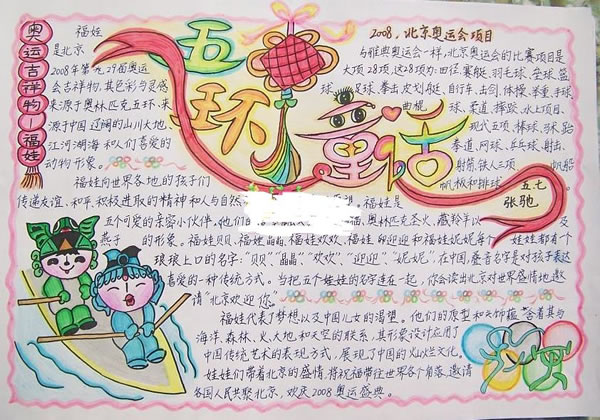 奥运吉祥物—福娃
五环童话
福娃
是北京
2008年第九29届奥运
会吉祥物,其色彩与灵感
来源于奥林匹克五环、来
源于中国辽阔的山川大地、
江河湖海和人们喜爱的
动物形象。
2008,北京奥运会项目
与雅典奥运会一样,北京奥运会的比赛项目是
大项28项,这28项为:田径、赛艇、羽毛球、垒球、篮
球、足球、拳击、皮划艇、自行车、击剑、体操、举重、手球、
曲棍球、柔道、摔跤、水上项目、
现代五项、棒球、马术、跆
拳道、网球、乒乓球、射击、
射箭、铁人三项、帆船
帆板和排球
五七
张驰
福娃向世界各地的孩子们
传递友谊、和平、积极进取的精神和人与自然 福娃是
五个可爱的亲密小伙伴,他们的 猫、奥林匹克圣火、藏羚羊以及
燕子的形象。福娃贝贝、福娃晶晶、福娃欢欢、福娃迎迎和福娃妮妮每个娃娃都有个
琅琅上口的名字:“贝贝”“晶晶”、“欢欢”、“迎迎”、“妮妮”,在中国,叠音名字是对孩子表达
喜爱的一种传统方式。当把五个娃娃的名字连在一起,你会读出北京对世界盛情地邀
请“北京欢迎你”
福娃代表了梦想以及中国儿女的渴望。他们的原型和头饰蕴含着其与
海洋、森林、火、大地和天空的联系,其形象设计应用了
中国传统艺术的表现方式,展现了中国的灿烂文化。
娃娃们带着北京的盛情,将祝福带往世界各个角落,邀请
各国人民共聚北京,欢庆2008奥运盛典。